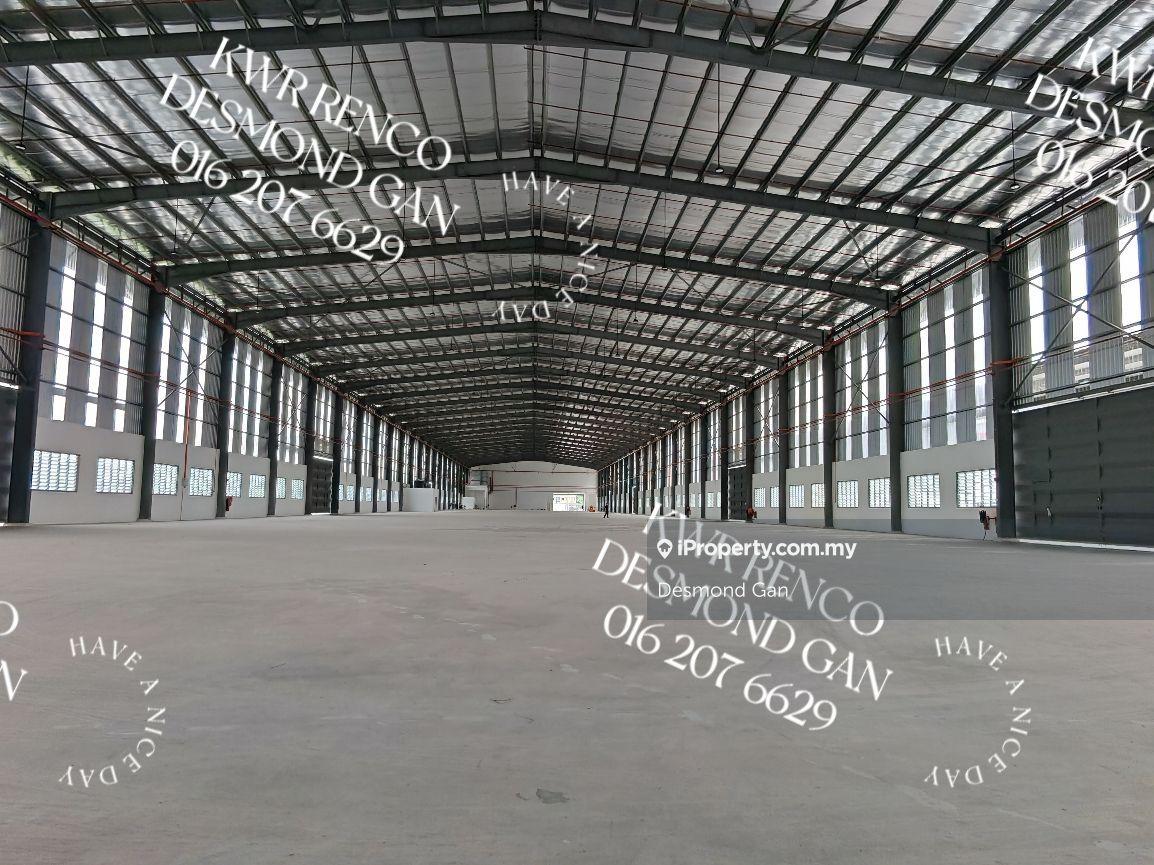 KWR RENCO
DESMOND GAN
016 207 6629
KW
DESMO
016 20
HAVE A NICE DAY
KWR RENCO
DESMOND GAN
016 207 6629
iProperty.com.my
Desmond Gan
O
N
HAVE A NICE DAY
HAVE A NICE DAY